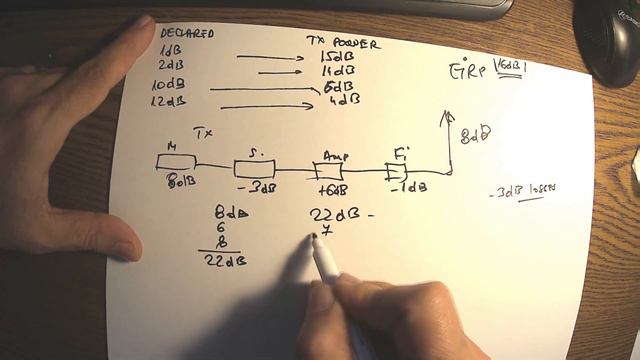 DECLARED
1dB
2dB
10dB
12dB
TX POWER
15dB
14dB
6dB
4dB
EiRP |16dB|
Tx
M
8dB
S.
-3dB
Amp
+6dB
Fi
-1dB
8dB
-3dB losses
8dB
6
8
22dB
22dB -
7